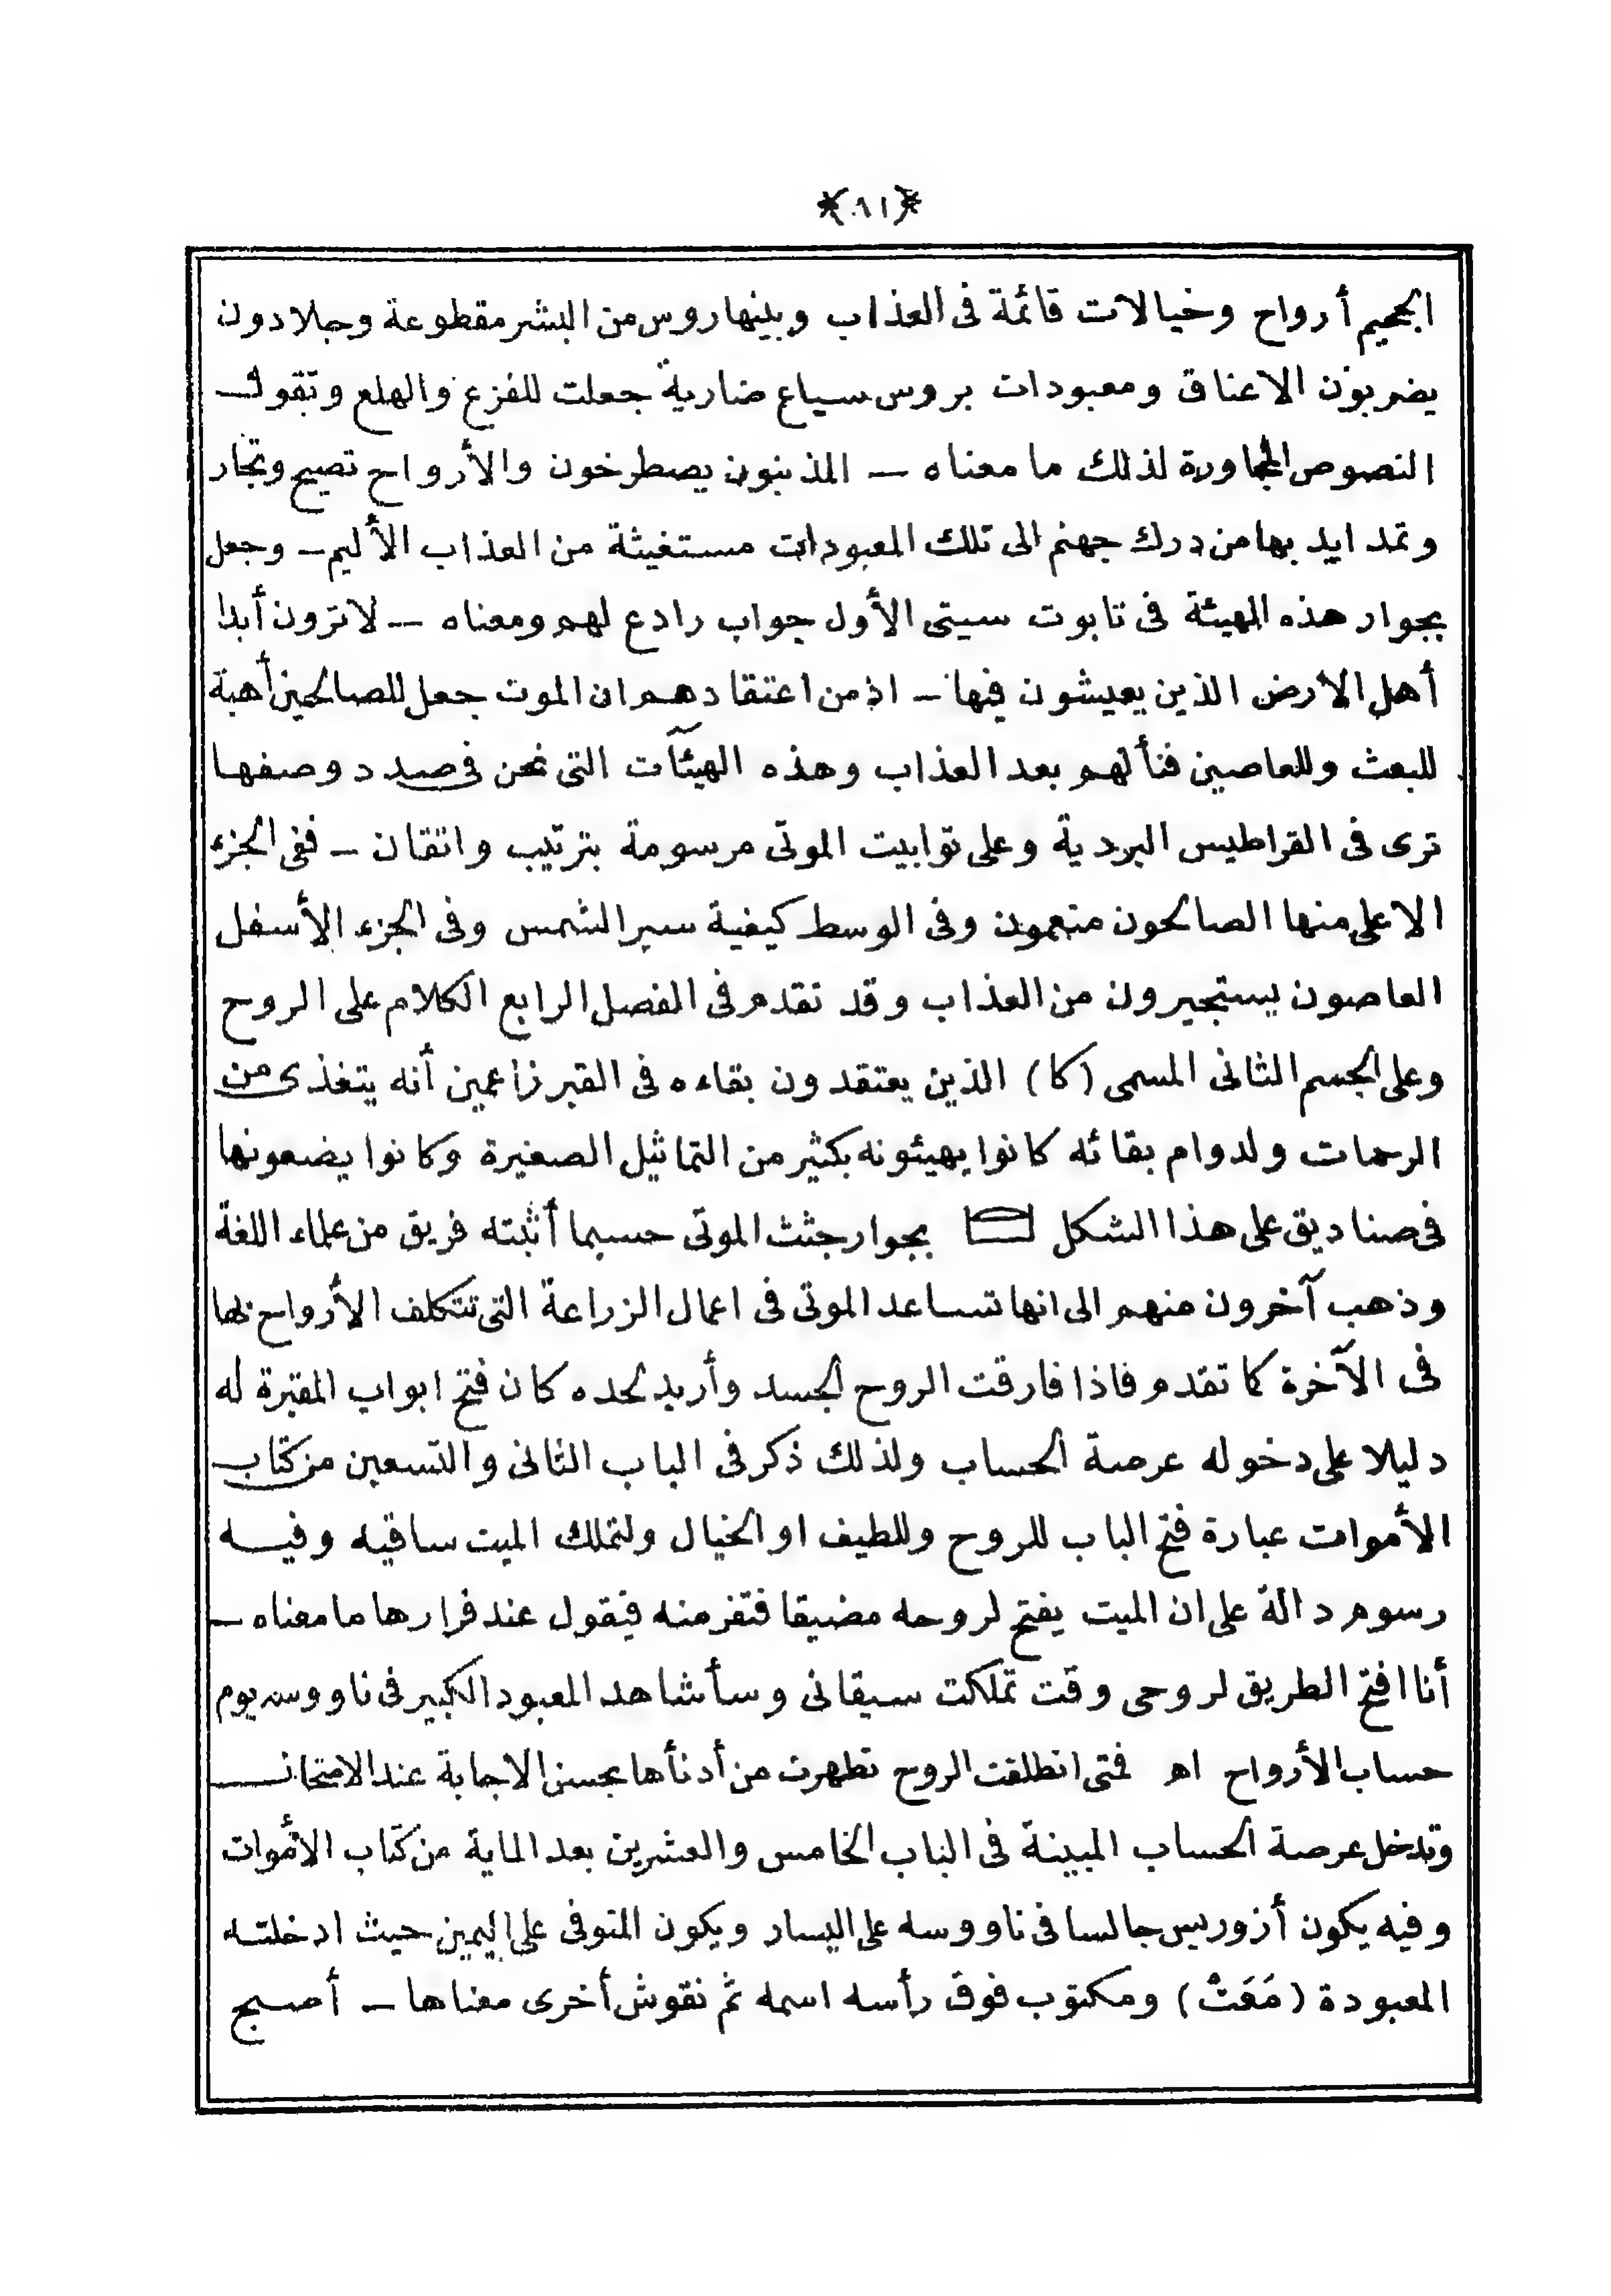 ﴿٨١﴾
الجحيم أرواح وخيالات قائمة فى العذاب وبينها روس من البشر مقطوعة وجلادون
يضربون الاعناق ومعبودات بروس سباع ضارية جعلت للفزع والهلع وتقول
النصوص المجاورة لذلك ما معناه — المذنبون يصطرخون والأرواح تصيح وتجار
وتمد ايد بها من درك جهنم الى تلك المعبودات مستغيثة من العذاب الأليم — وجعل
بجوار هذه الهيئة فى تابوت سيتى الأول جواب رادع لهم ومعناه — لا ترون أبدا
أهل الارض الذين يعيشون فيها — اذ من اعتقادهم ان الموت جعل للصالحين أهبة
للبعث وللعاصين فنألهم بعد العذاب وهذه الهيئآت التى نحن فى صدد وصفها
ترى فى القراطيس البردية وعلى توابيت الموتى مرسومة بترتيب واتقان — ففى الجزء
الاعلى منها الصالحون منعمون وفى الوسط كيفية سير الشمس وفى الجزء الأسفل
العاصون يستجيرون من العذاب وقد تقدم فى الفصل الرابع الكلام على الروح
وعلى الجسم الثانى المسمى (كا) الذين يعتقدون بقاءه فى القبر زاعمين أنه يتغذى من
الرحمات ولدوام بقائه كانوا يهيئونه بكثير من التماثيل الصغيرة وكانوا يضعونها
فى صناديق على هذا الشكل بجوار جثث الموتى حسبما أثبته فريق من علماء اللغة
وذهب آخرون منهم الى انها تساعد الموتى فى اعمال الزراعة التى تتكلف الأرواح بها
فى الآخرة كما تقدم فاذا فارقت الروح الجسد وأريد لحده كان فتح ابواب المقبرة له
دليلا على دخوله عرصة الحساب ولذلك ذكر فى الباب الثانى والتسعين من كتاب
الأموات عبارة فتح الباب للروح وللطيف او الخيال ولتملك الميت ساقيه وفيه
رسوم دالة على ان الميت يفتح لروحه مضيقا فتفر منه فيقول عند فرارها ما معناه —
أنا افتح الطريق لروحى وقت تملكت سيقانى وسأشاهد المعبود الكبير فى ناووسه يوم
حساب الأرواح اه فمتى انطلقت الروح تطهرت من أدنأها بحسن الاجابة عند الامتحان
وتدخل عرصة الحساب المبينة فى الباب الخامس والعشرين بعد الماية من كتاب الأموات
وفيه يكون أزوريس جالسا فى ناووسه على اليسار ويكون المتوفى على اليمين حيث ادخلته
المعبودة (مَعَتْ) ومكتوب فوق رأسه اسمه ثم نقوش أخرى معناها — أصبح